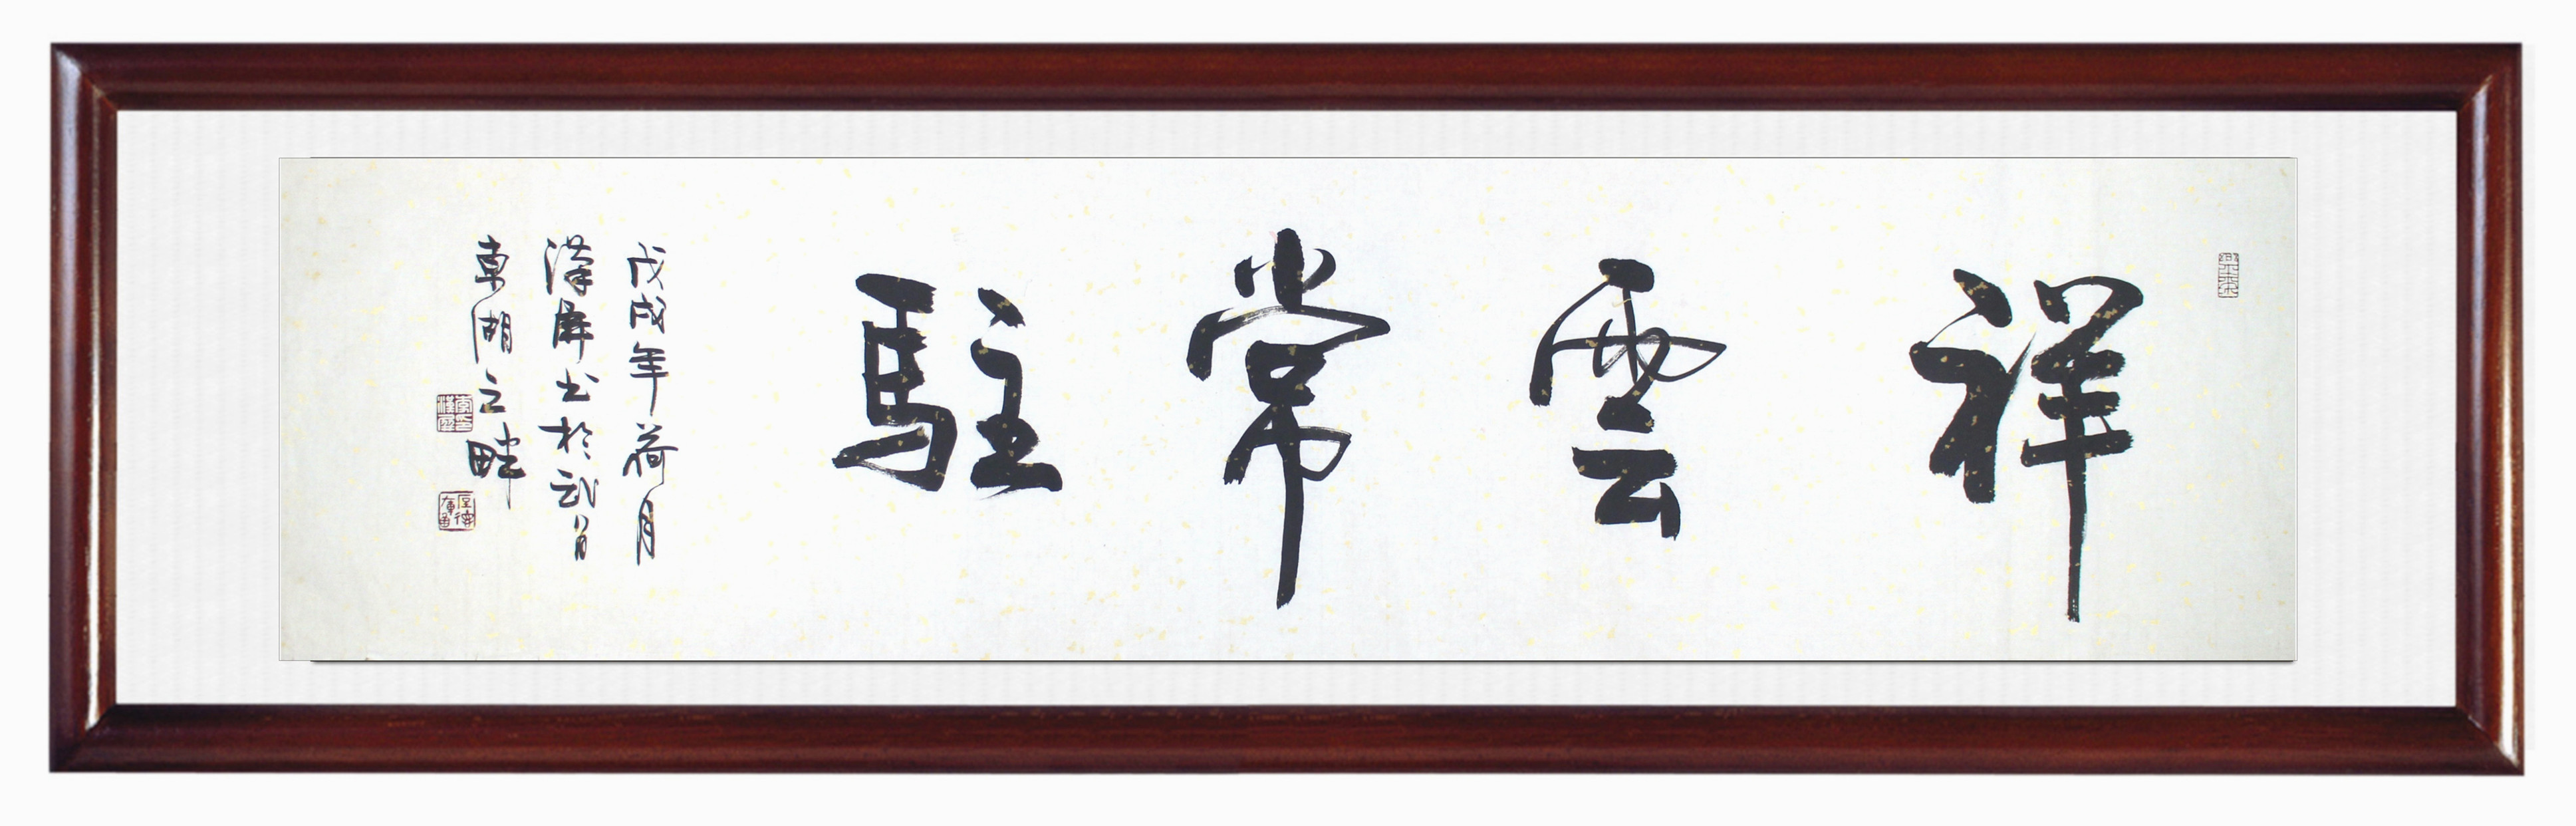 祥雲常駐
戊戌年荷月
漢屏书於武昌
東湖之畔